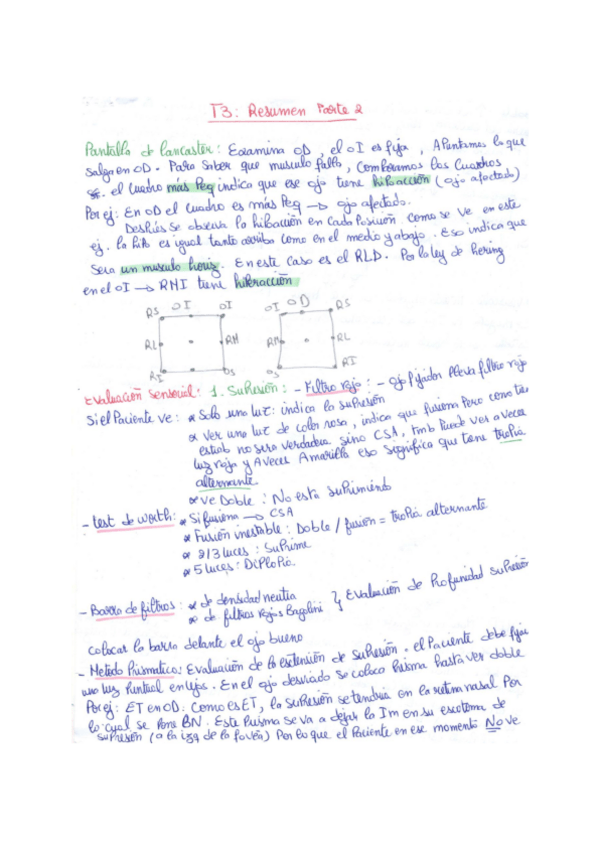 T3: Resumen Parte 2
Pantalla de Lancaster: Examina OD, el OI es fija, Apuntamos lo que
salga en OD. Para saber que musculo falla, Comparamos los Cuadros
el cuadro más Peq indica que ese ojo tiene hipoacción (ojo afectado)
Por ej: En OD el cuadro es más Peq → ojo afectado.
Después se observa la hipoacción en cada Posición como se ve en este
ej. la hipo es igual tanto arriba como en el medio y abajo. Eso indica que
Sera un musculo horiz. En este caso es el RLD. Por la ley de hering
en el OI → RMI tiene hiperacción
RS OI OI
RL RM
RI OS
OI OD RS
RM RL
OS RI
Evaluación Sensorial: 1. Supresión: - Filtro rojo: - ojo fijador lleva filtro rojo
Si el Paciente ve: * Solo una luz: indica la supresión
* ver una luz de color rosa, indica que fusiona pero como tiene
estrab no sera verdadera sino CSA, Tmb Puede ver a veces
luz roja y A veces Amarilla eso significa que tiene tropia
alternante
* ve Doble: No está suprimiendo
- test de worth: * Si fusiona → CSA
* Fusión inestable: Doble / fusión = tropia alternante
* 2/3 luces: Suprime
* 5 luces: Diplopia.
- Barra de filtros: * de densidad neutra
* de filtros rojos Bagolini } Evaluación de Profunidad supresión
colocar la barra delante el ojo bueno
- Metodo Prismatico: Evaluación de la extensión de supresión. el Paciente debe fijar
una luz Puntual en lejos. En el ojo desviado se coloca Prisma hasta ver doble
Por ej: ET en OD: Como es ET, la supresión se tendria en la retina nasal Por
lo cual se Pone BN. Este Prisma se va a dejar la Im en su escotoma de
supresión (a la izq de la fovea) Por lo que el Paciente en ese momento No ve